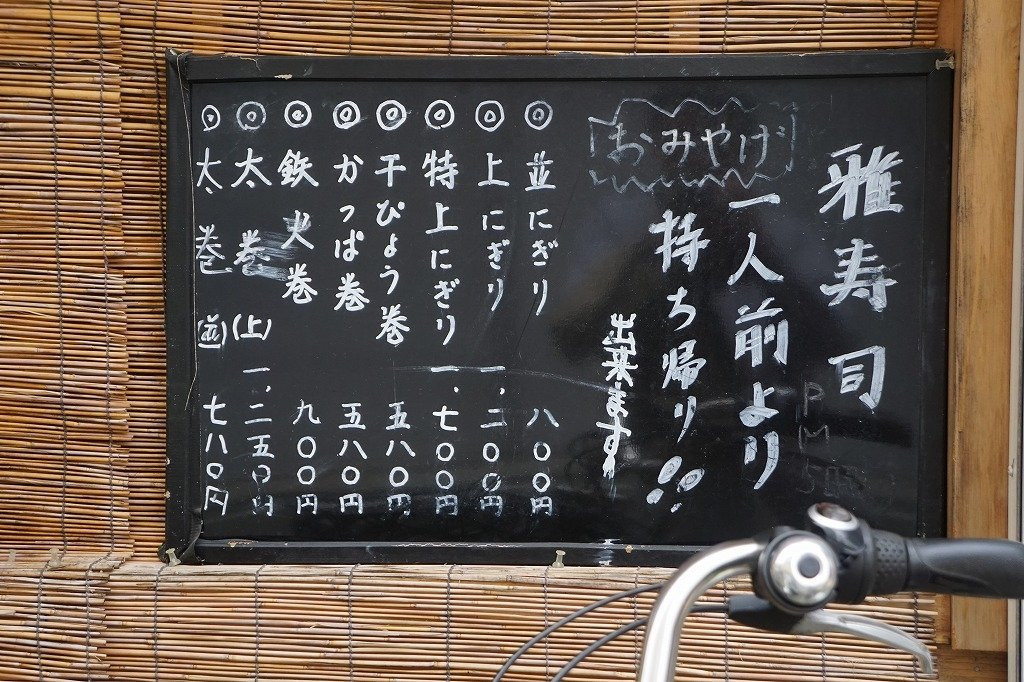 雅寿司
おみやげ
一人前より
持ち帰り
出来ます
◎並にぎり 八〇〇円
◎上にぎり 一、二〇〇円
◎特上にぎり 一、七〇〇円
◎干ぴょう巻 五八〇円
◎かっぱ巻 五八〇円
◎鉄火巻 九〇〇円
◎太巻(上) 一、二五〇円
◎太巻(並) 七八〇円